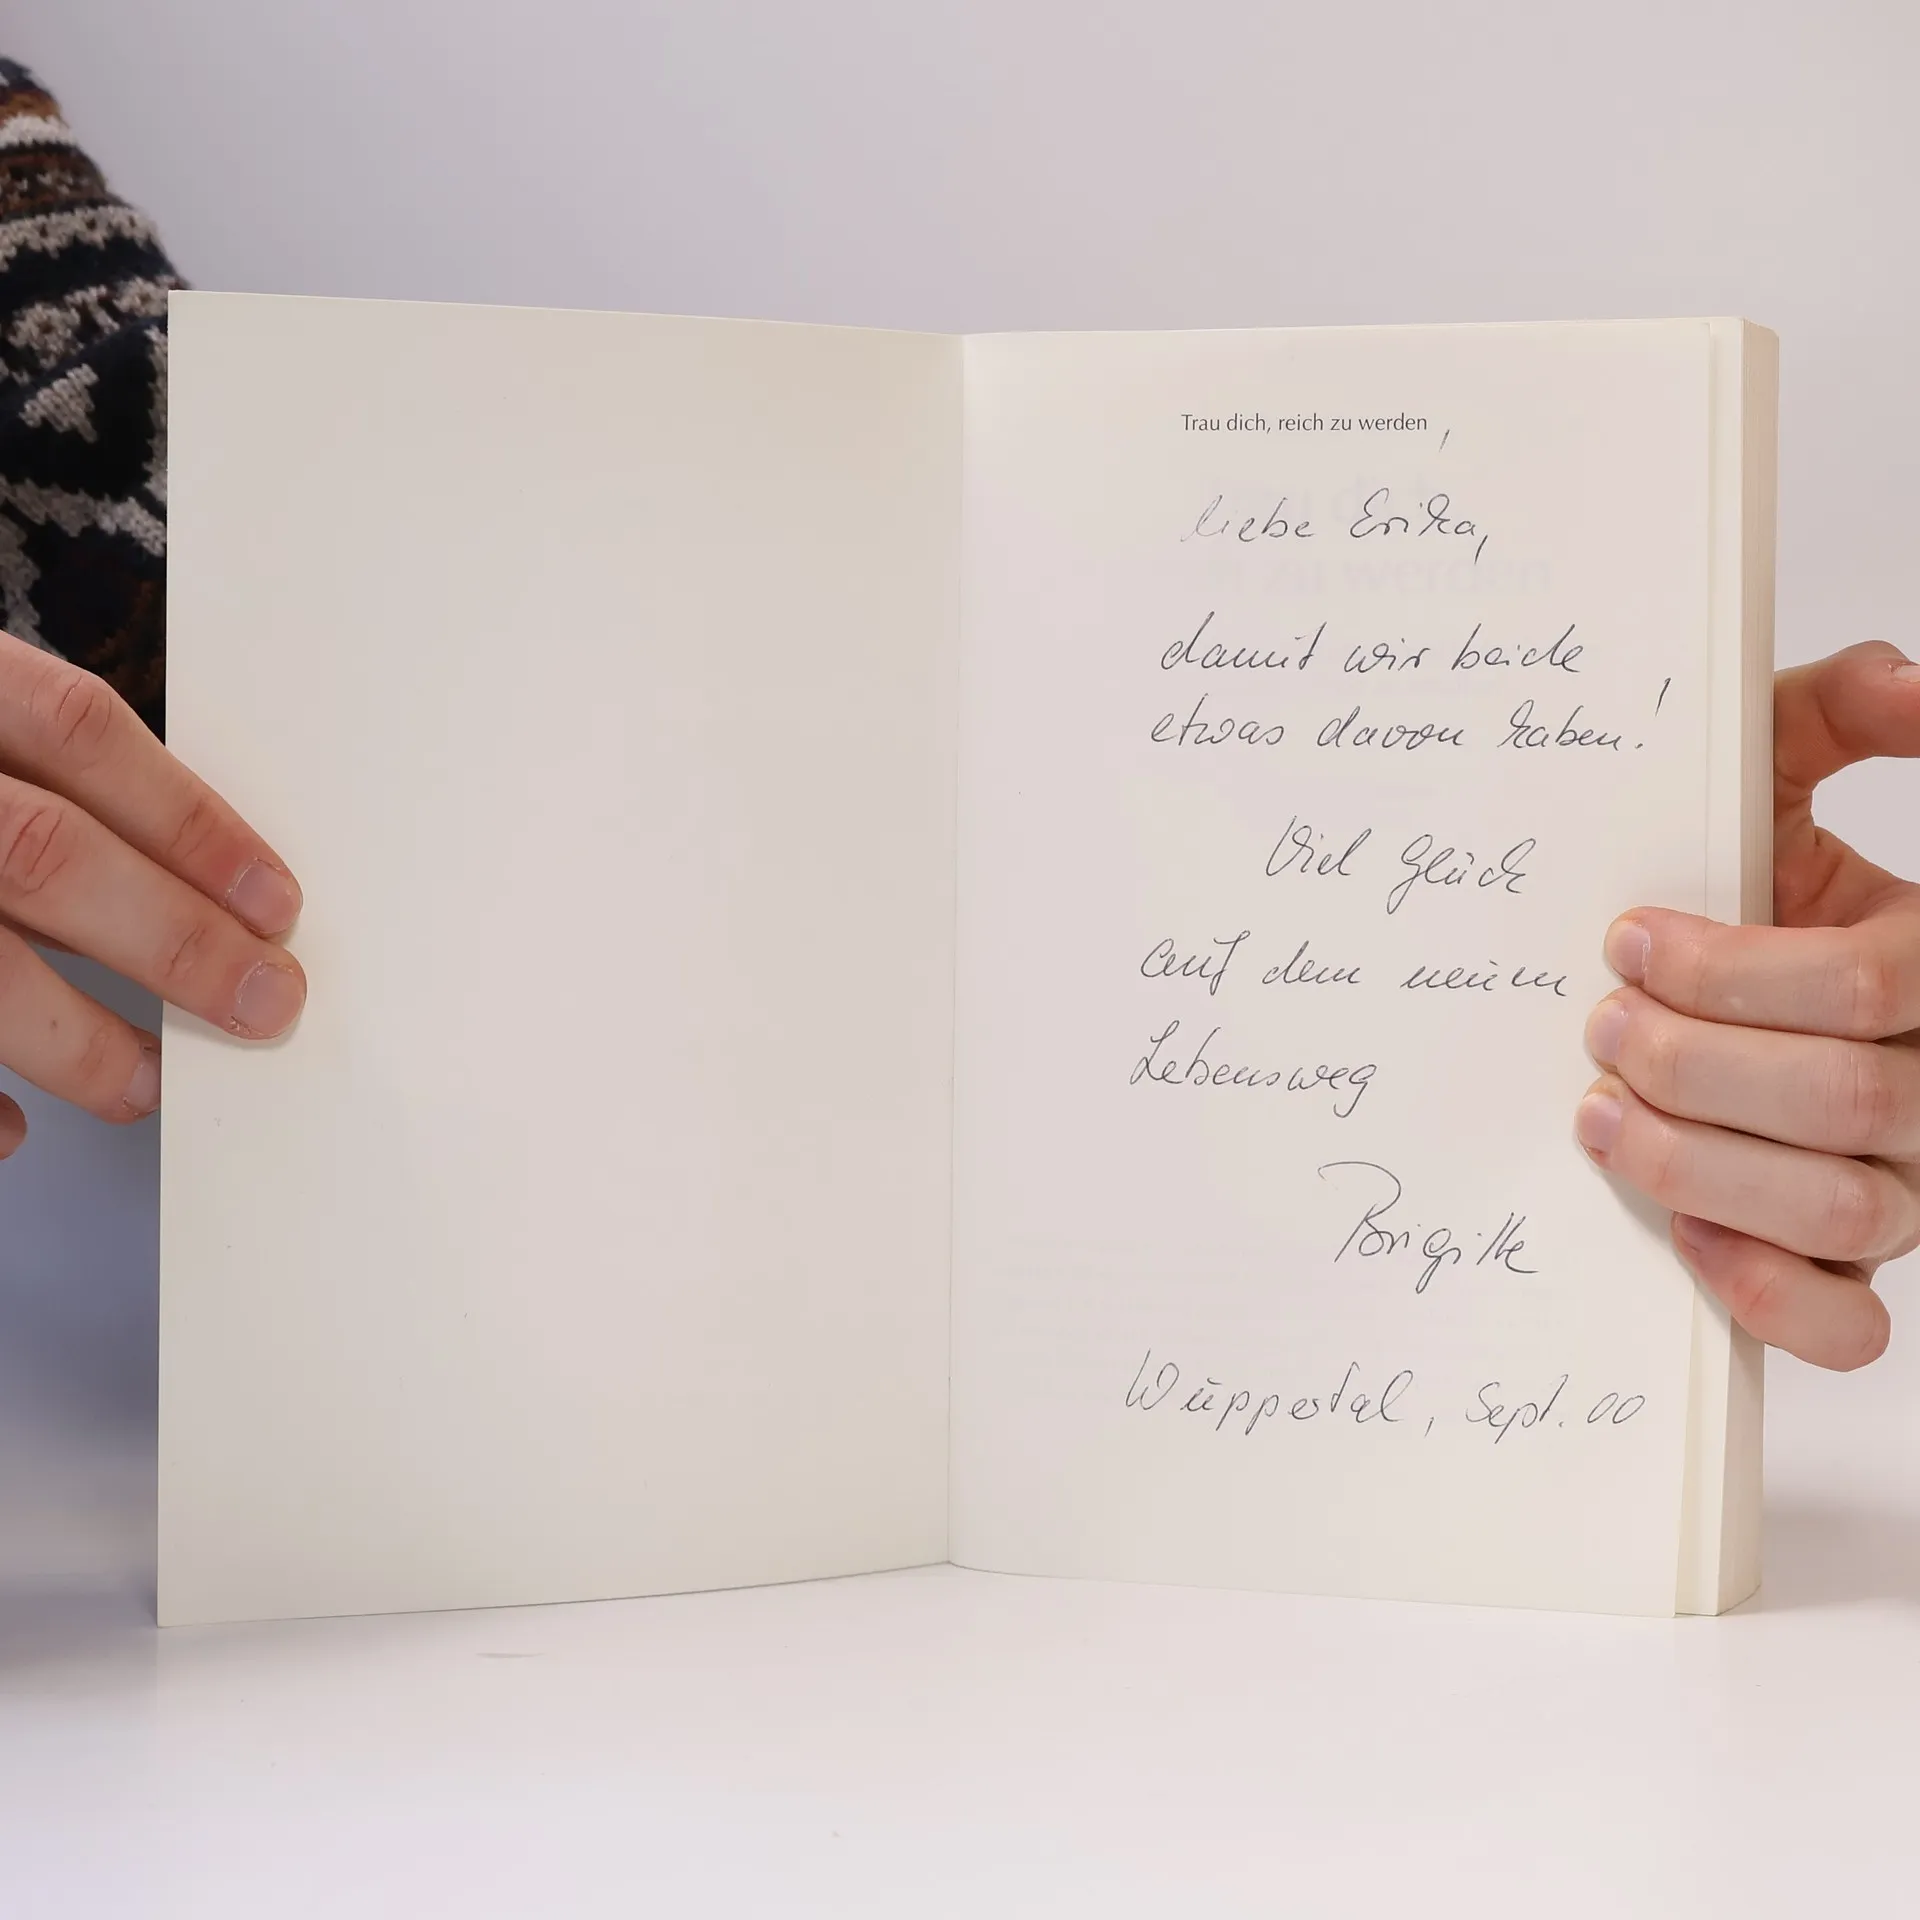 Trau dich, reich zu werden
liebe Erika,
damit wir beide
etwas davon haben!
Viel Glück
auf dem neuen
Lebensweg
Brigitte
Wuppertal, Sept. 00